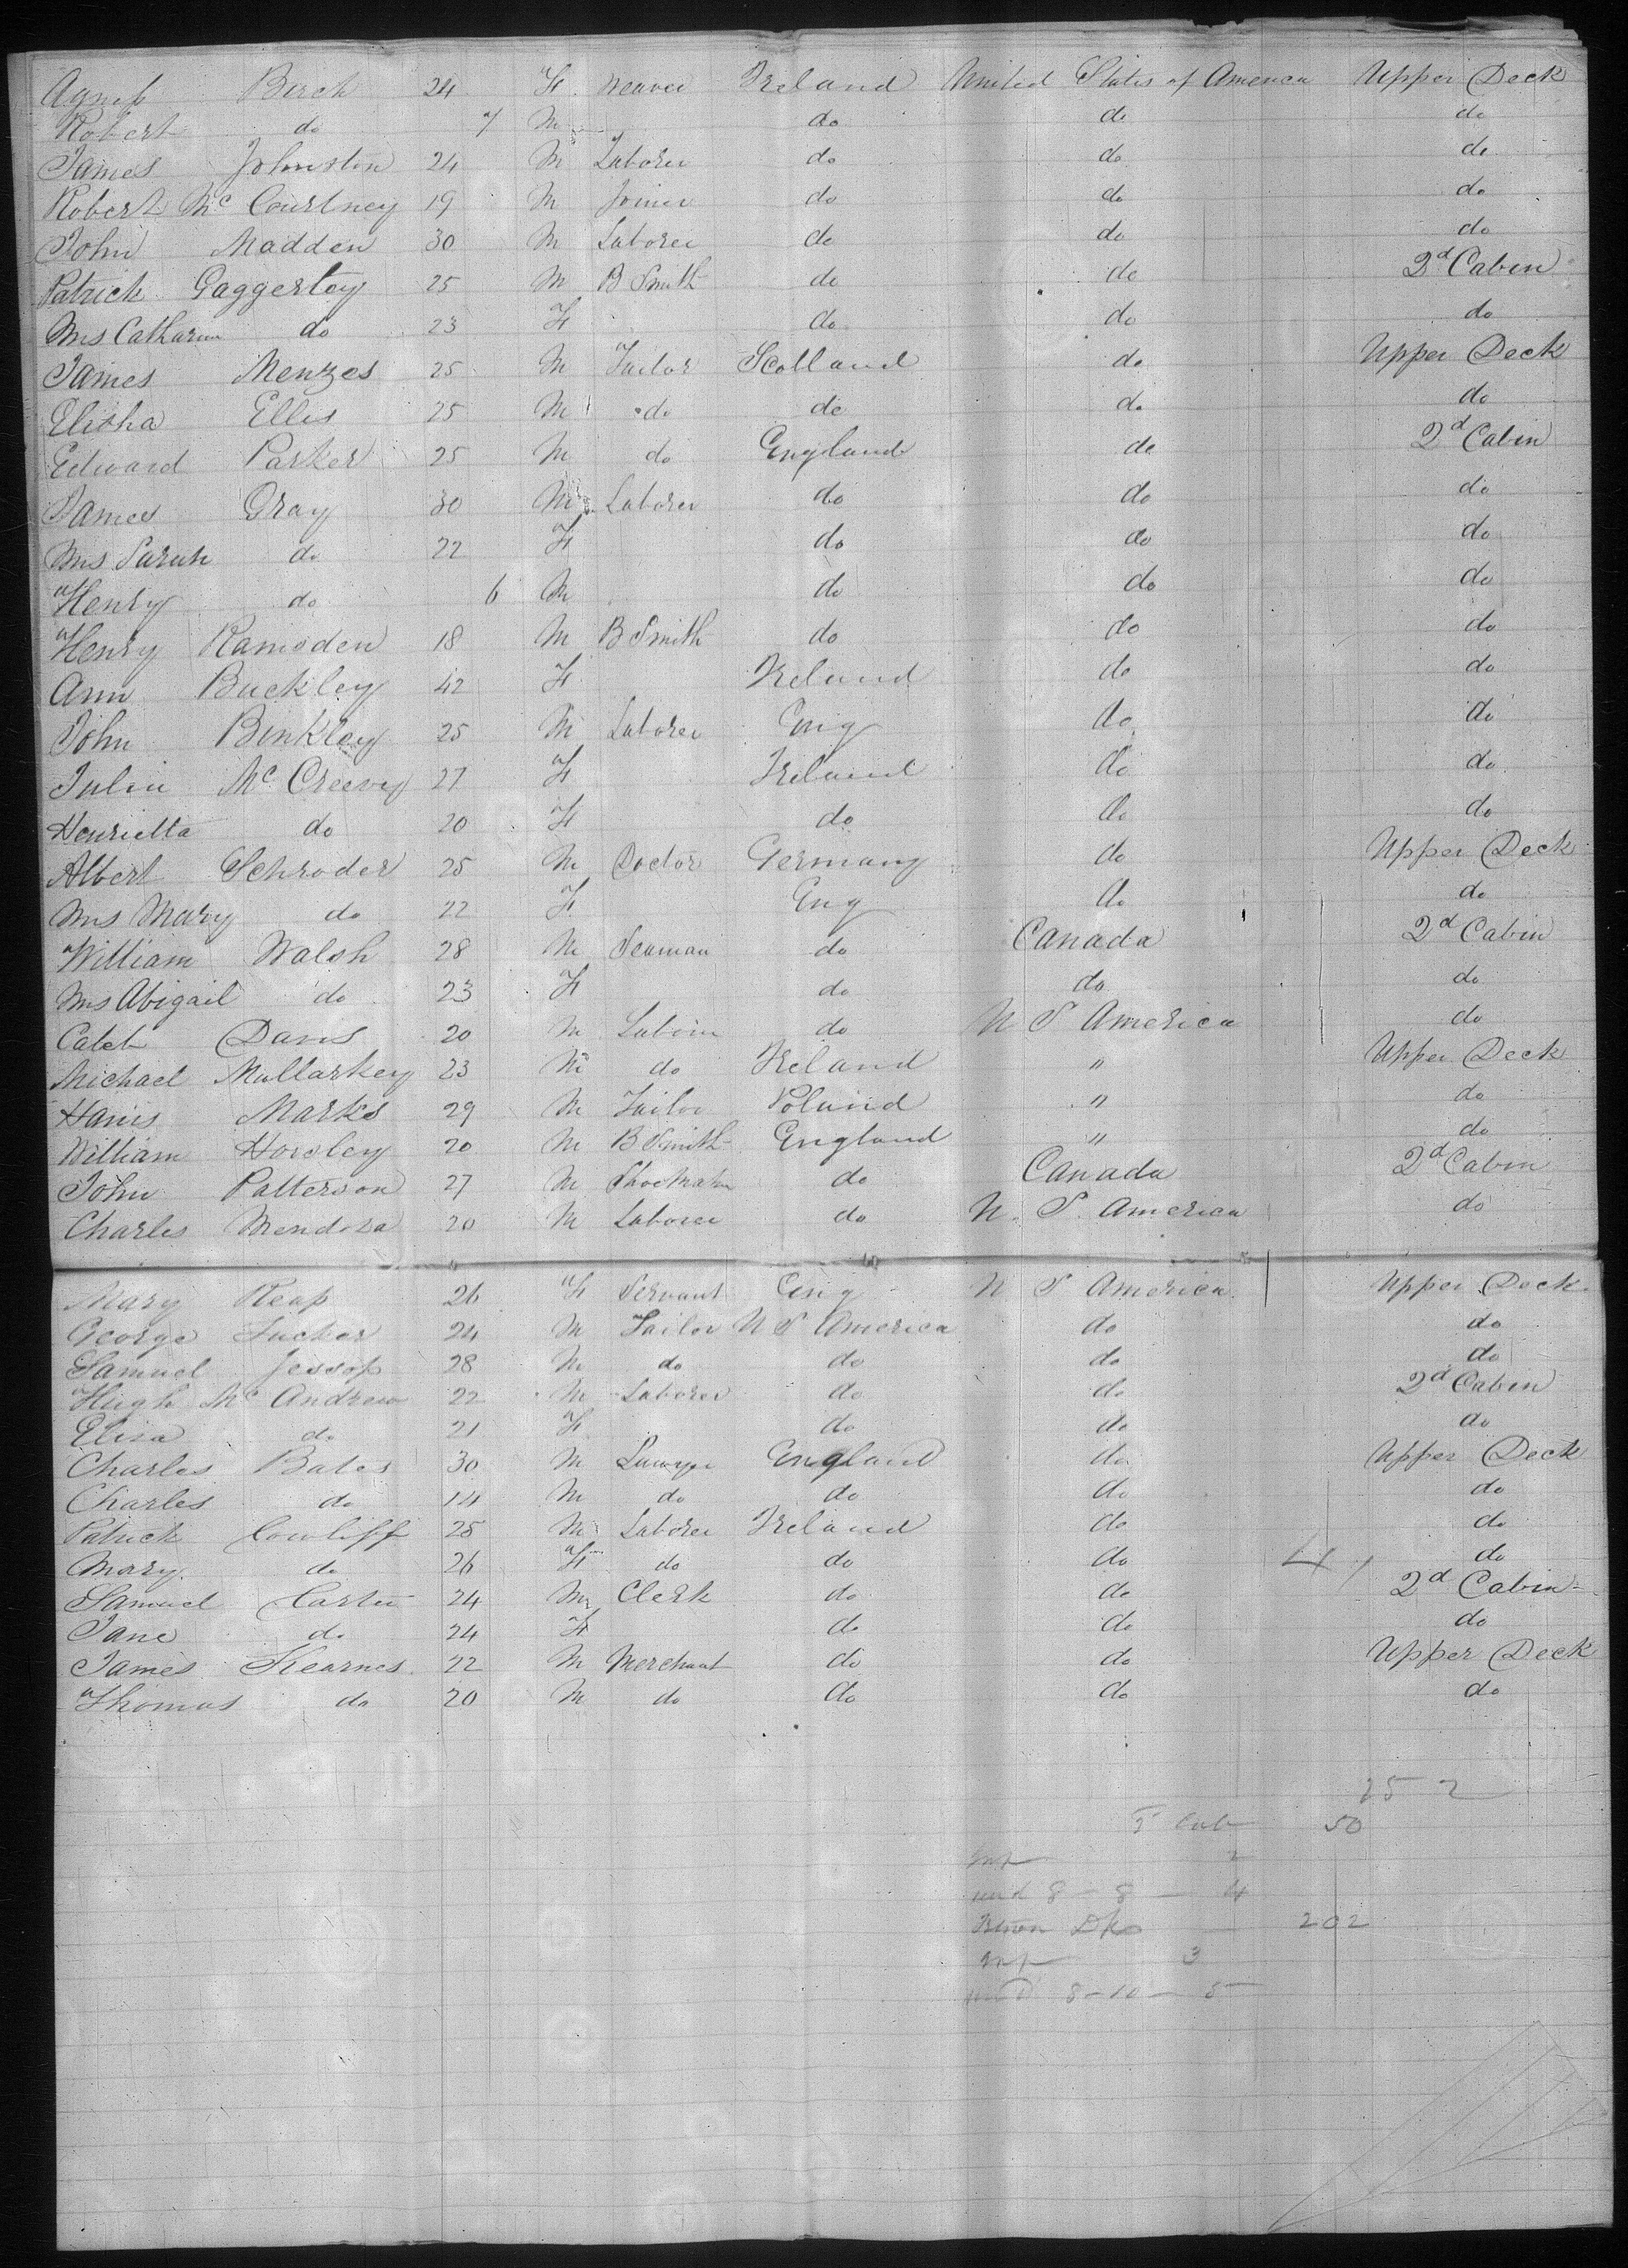 Agness Birch 24 F Weaver Ireland United States of America Upper Deck
Robert do 7 M do do do
James Johnston 24 M Laborer do do do
Robert Mc Courtney 19 M Joiner do do do
John Madden 30 M Laborer do do do
Patrick Gaggertoy 25 M B Smith do do 2d Cabin
Mrs Catharin do 23 F do do do
James Menzes 25 M Tailor Scotland do Upper Deck
Elisha Ellis 25 M do do do do
Edward Parker 25 M do England do 2d Cabin
James Gray 30 M Laborer do do do
Mrs Sarah do 22 F do do do
Henry do 6 M do do do
Henry Ramsden 18 M B Smith do do do
Ann Buckley 42 F Ireland do do
John Binkley 25 M Laborer Eng do do
Julia Mc Creevy 27 F Ireland do do
Henrietta do 20 F do do do
Albert Schroder 25 M Doctor Germany do Upper Deck
Mrs Mary do 22 F Eng do do
William Walsh 28 M Seaman do Canada 2d Cabin
Mrs Abigail do 23 F do do do
Caleb Davis 20 M Laborer do U S America do
Michael Mullarkey 23 M do Ireland " Upper Deck
Harris Marks 29 M Tailor Poland " do
William Horsley 20 M B Smith England " do
John Patterson 27 M Shoemaker do Canada 2d Cabin
Charles Mendoza 20 M Laborer do U. S. America do
Mary Heap 26 F Servant Eng U S America Upper Deck
George Tucker 24 M Tailor U S America do do
Samuel Jessop 28 M do do do do
Hugh Mc Andrew 22 M Laborer do do 2d Cabin
Eliza do 21 F do do do
Charles Bates 30 M Lawyer England do Upper Deck
Charles do 14 M do do do do
Patrick Cowliff 25 M Laborer Ireland do do
Mary do 26 F do do do 4 do
Samuel Carter 24 M Clerk do do 2d Cabin
Jane do 24 F do do do
James Kearnes 22 M Merchant do do Upper Deck
Thomas do 20 M do do do do
25 2
Cab 50
Inf 2
und 8 - 8 - 4
Dk 202
Inf 3
und 8 - 10 - 5